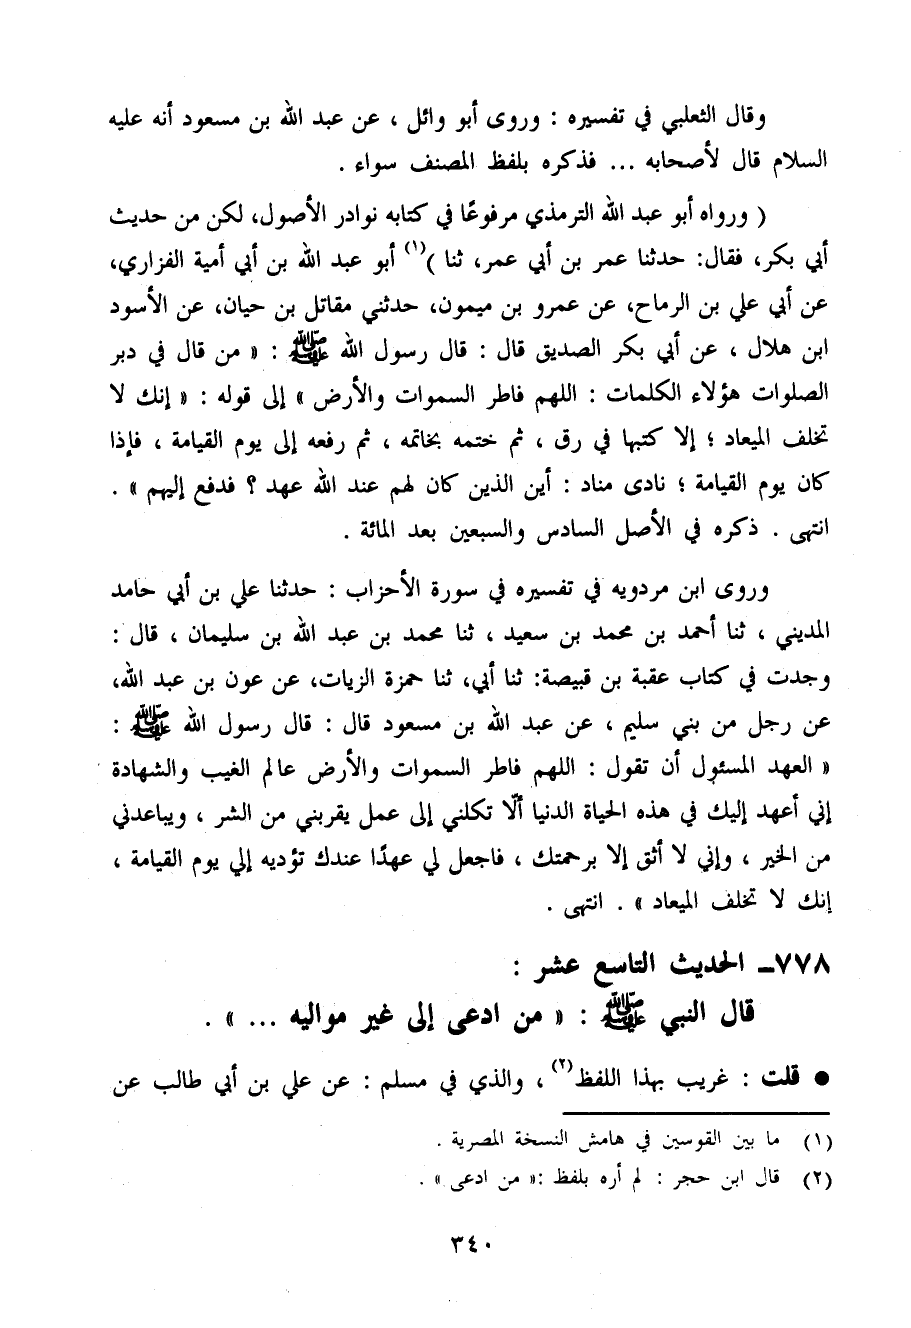 وقال الثعلبي في تفسيره : وروى أبو وائل ، عن عبد الله بن مسعود أنه عليه
السلام قال لأصحابه ... فذكره بلفظ المصنف سواء .
( ورواه أبو عبد الله الترمذي مرفوعًا في كتابه نوادر الأصول، لكن من حديث
أبي بكر، فقال: حدثنا عمر بن أبي عمر، ثنا )(١) أبو عبد الله بن أبي أمية الفزاري،
عن أبي علي بن الرماح، عن عمرو بن ميمون، حدثني مقاتل بن حيان، عن الأسود
ابن هلال ، عن أبي بكر الصديق قال : قال رسول الله ﷺ : « من قال في دبر
الصلوات هؤلاء الكلمات : اللهم فاطر السموات والأرض » إلى قوله : « إنك لا
تخلف الميعاد ؛ إلا كتبها في رق ، ثم ختمه بخاتمه ، ثم رفعه إلى يوم القيامة ، فإذا
كان يوم القيامة ؛ نادى مناد : أين الذين كان لهم عند الله عهد ؟ فدفع إليهم » .
انتهى . ذكره في الأصل السادس والسبعين بعد المائة .
وروى ابن مردويه في تفسيره في سورة الأحزاب : حدثنا علي بن أبي حامد
المديني ، ثنا أحمد بن محمد بن سعيد ، ثنا محمد بن عبد الله بن سليمان ، قال :
وجدت في كتاب عقبة بن قبيصة: ثنا أبي، ثنا حمزة الزيات، عن عون بن عبد الله،
عن رجل من بني سليم ، عن عبد الله بن مسعود قال : قال رسول الله ﷺ :
« العهد المسئول أن تقول : اللهم فاطر السموات والأرض عالم الغيب والشهادة
إني أعهد إليك في هذه الحياة الدنيا ألّا تكلني إلى عمل يقربني من الشر ، ويباعدني
من الخير ، وإني لا أثق إلا برحمتك ، فاجعل لي عهدًا عندك تؤديه إلي يوم القيامة ،
إنك لا تخلف الميعاد » . انتهى .
٧٧٨ـ الحديث التاسع عشر :
قال النبي ﷺ : « من ادعى إلى غير مواليه ... » .
● قلت : غريب بهذا اللفظ(٢) ، والذي في مسلم : عن علي بن أبي طالب عن
(١) ما بين القوسين في هامش النسخة المصرية .
(٢) قال ابن حجر : لم أره بلفظ :« من ادعى » .
٣٤٠